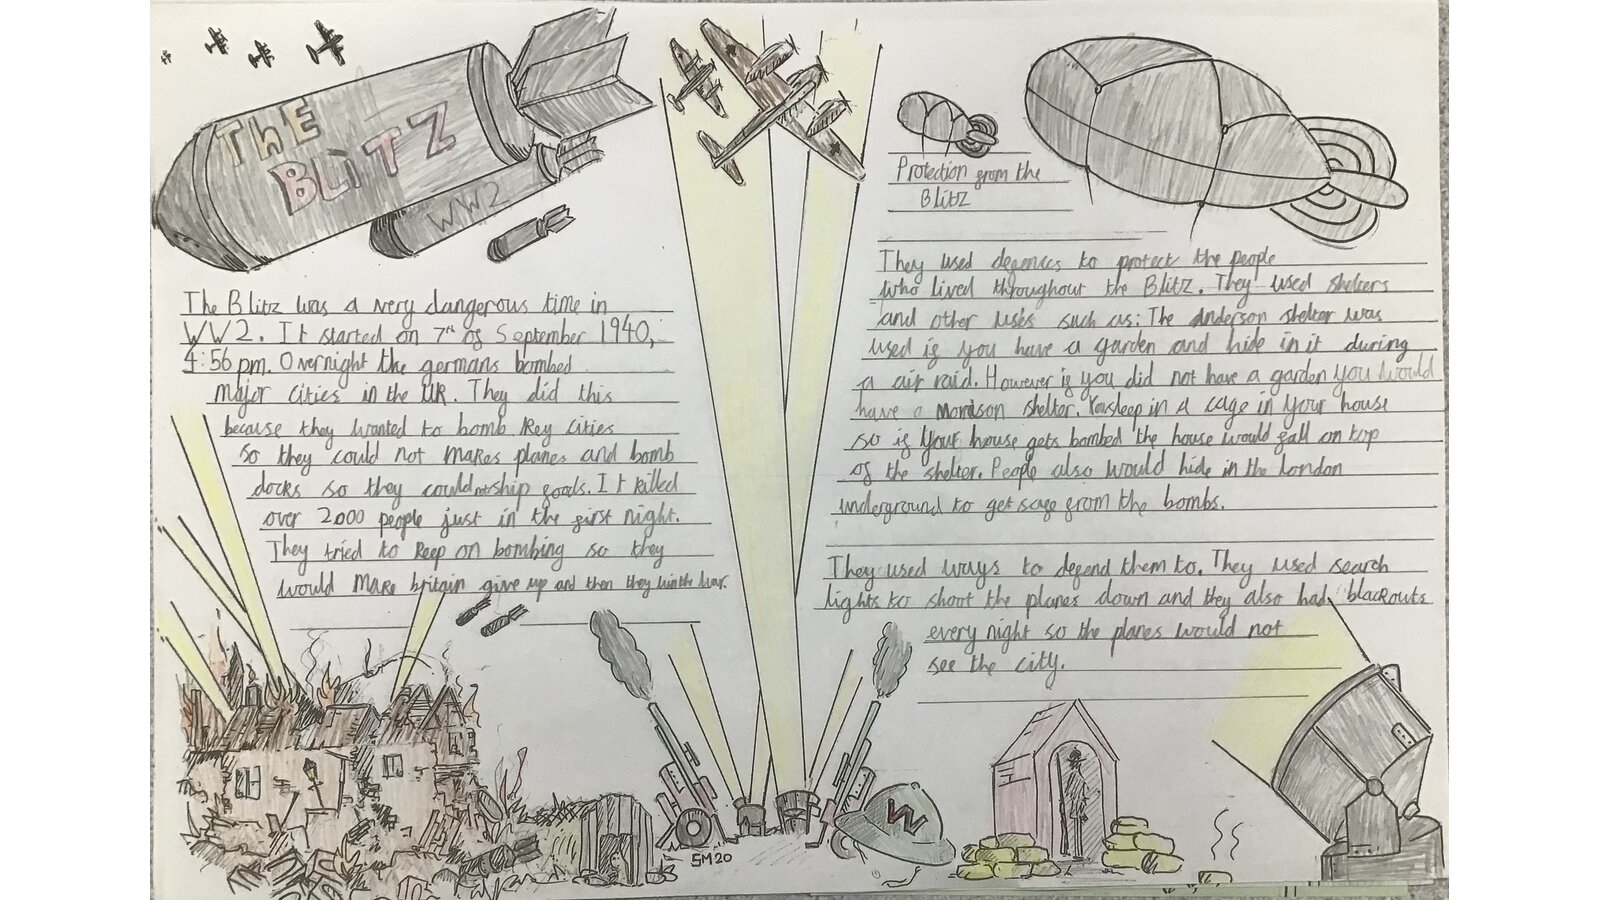 THE
BLITZ
WW2
The Blitz was a very dangerous time in
WW2. It started on 7th of September 1940,
4:56 pm. Overnight the germans bombed
major cities in the UK. They did this
because they wanted to bomb key cities
so they could not makes planes and bomb
docks so they could not ship goods. It killed
over 2000 people just in the first night.
They tried to keep on bombing so they
would make britain give up and then they win the war.
Protection from the
Blitz
They used defences to protect the people
who lived throughout the Blitz. They used shelters
and other uses such as: The Anderson shelter was
used if you have a garden and hide in it during
a air raid. However if you did not have a garden you would
have a morrison shelter. You sleep in a cage in your house
so if your house gets bombed the house would fall on top
of the shelter. People also would hide in the london
underground to get safe from the bombs.
They used ways to defend them to. They used search
lights to shoot the planes down and they also had blackouts
every night so the planes would not
see the city.
W
SM20